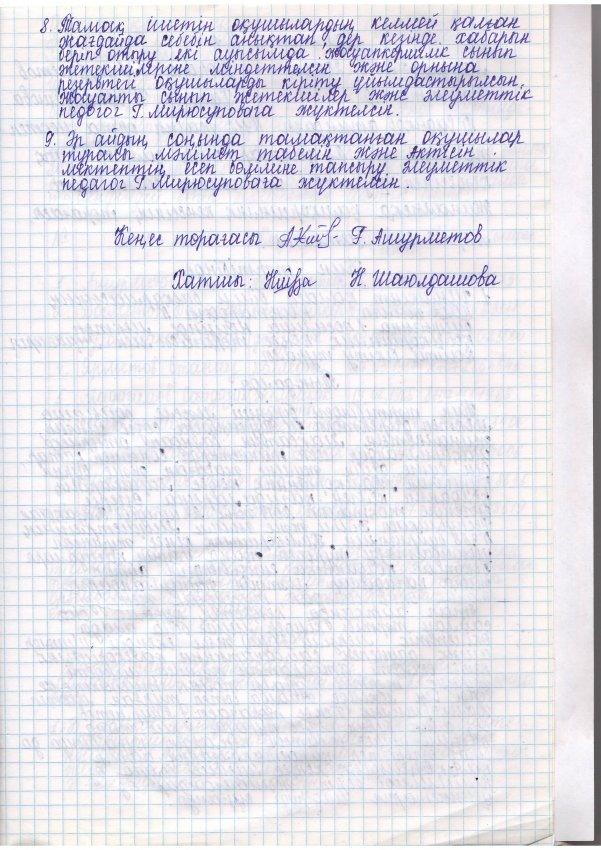 8. Тамақ ішетін оқушылардың келмей қалған
жағдайда себебін анықтап, дер кезінде хабарын
беріп отыру екі ауысымда жауапкершілік сынып
жетекшілеріне міндеттелсін және орнына
резервтегі оқушыларды кіріту ұйымдастырылсын.
Жауапты сынып жетекшілер және әлеуметтік
педагог Г. Мирюсуповаға жүктелсін.
9. Әр айдың соңында тамақтанған оқушылар
туралы мәлімет табелін және Актісін
мектептің есеп бөліміне тапсыру. Әлеуметтік
педагог Г. Мирюсуповаға жүктелсін.
Кеңес төрағасы Г. Ашурметов
Хатшы: Н. Шаюлдашова